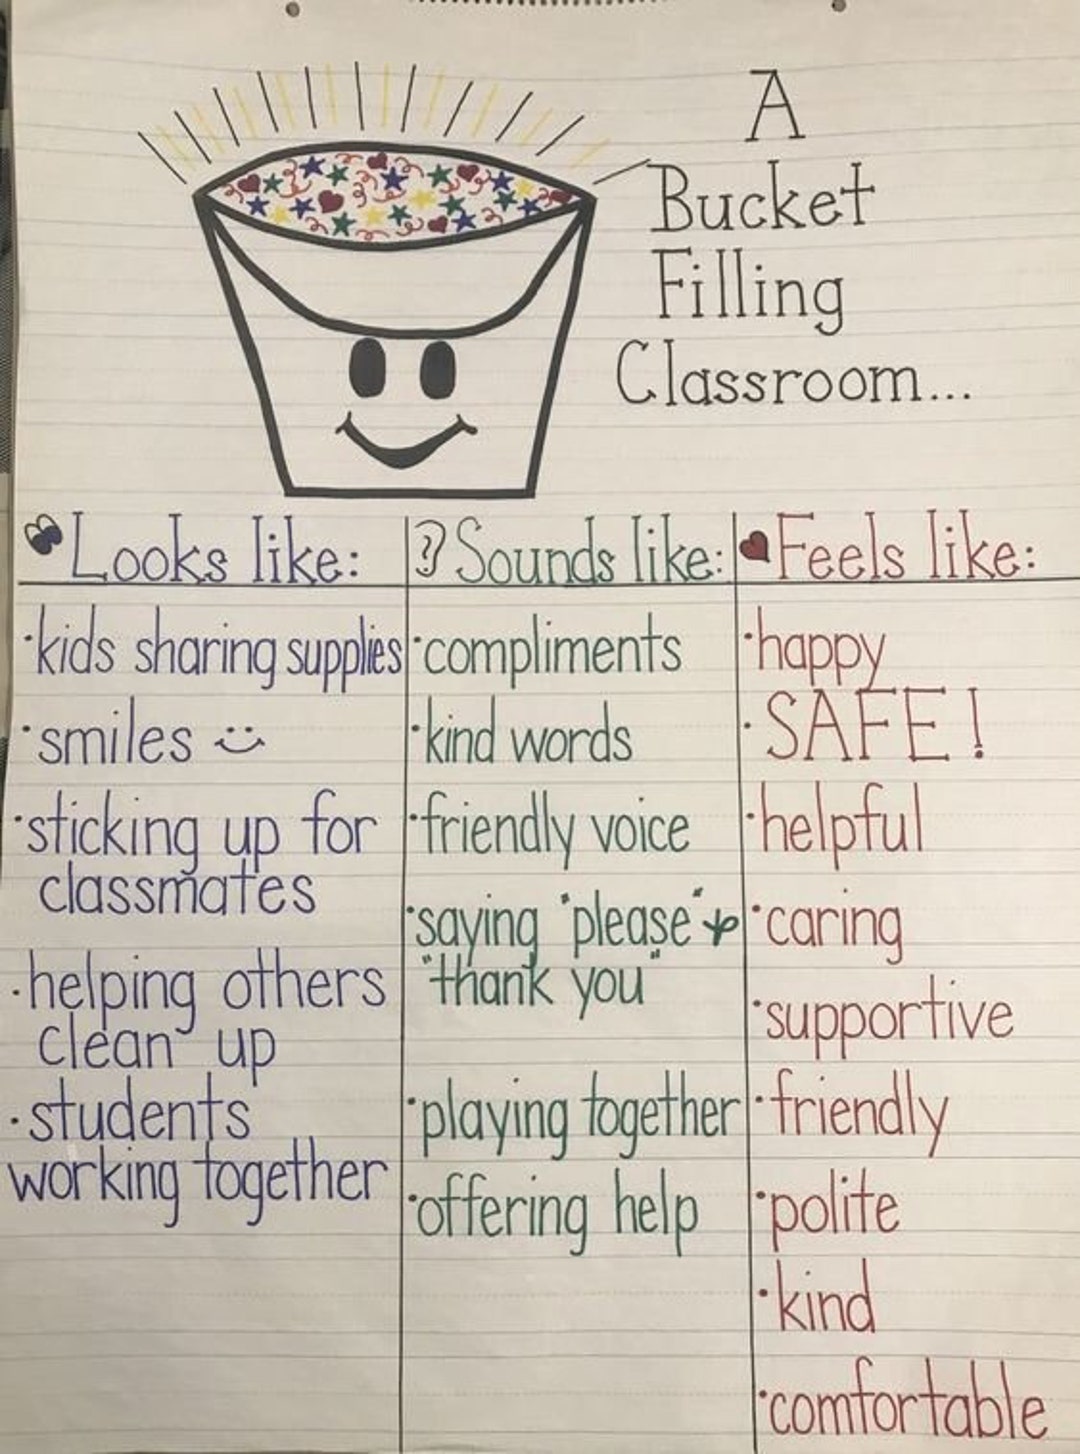 A
Bucket
Filling
Classroom...
Looks like:
·kids sharing supplies
·smiles
·sticking up for
classmates
·helping others
clean up
·students
working together
Sounds like:
·compliments
·kind words
·friendly voice
·saying "please" &
"thank you"
·playing together
·offering help
Feels like:
·happy
·SAFE!
·helpful
·caring
·supportive
·friendly
·polite
·kind
·comfortable